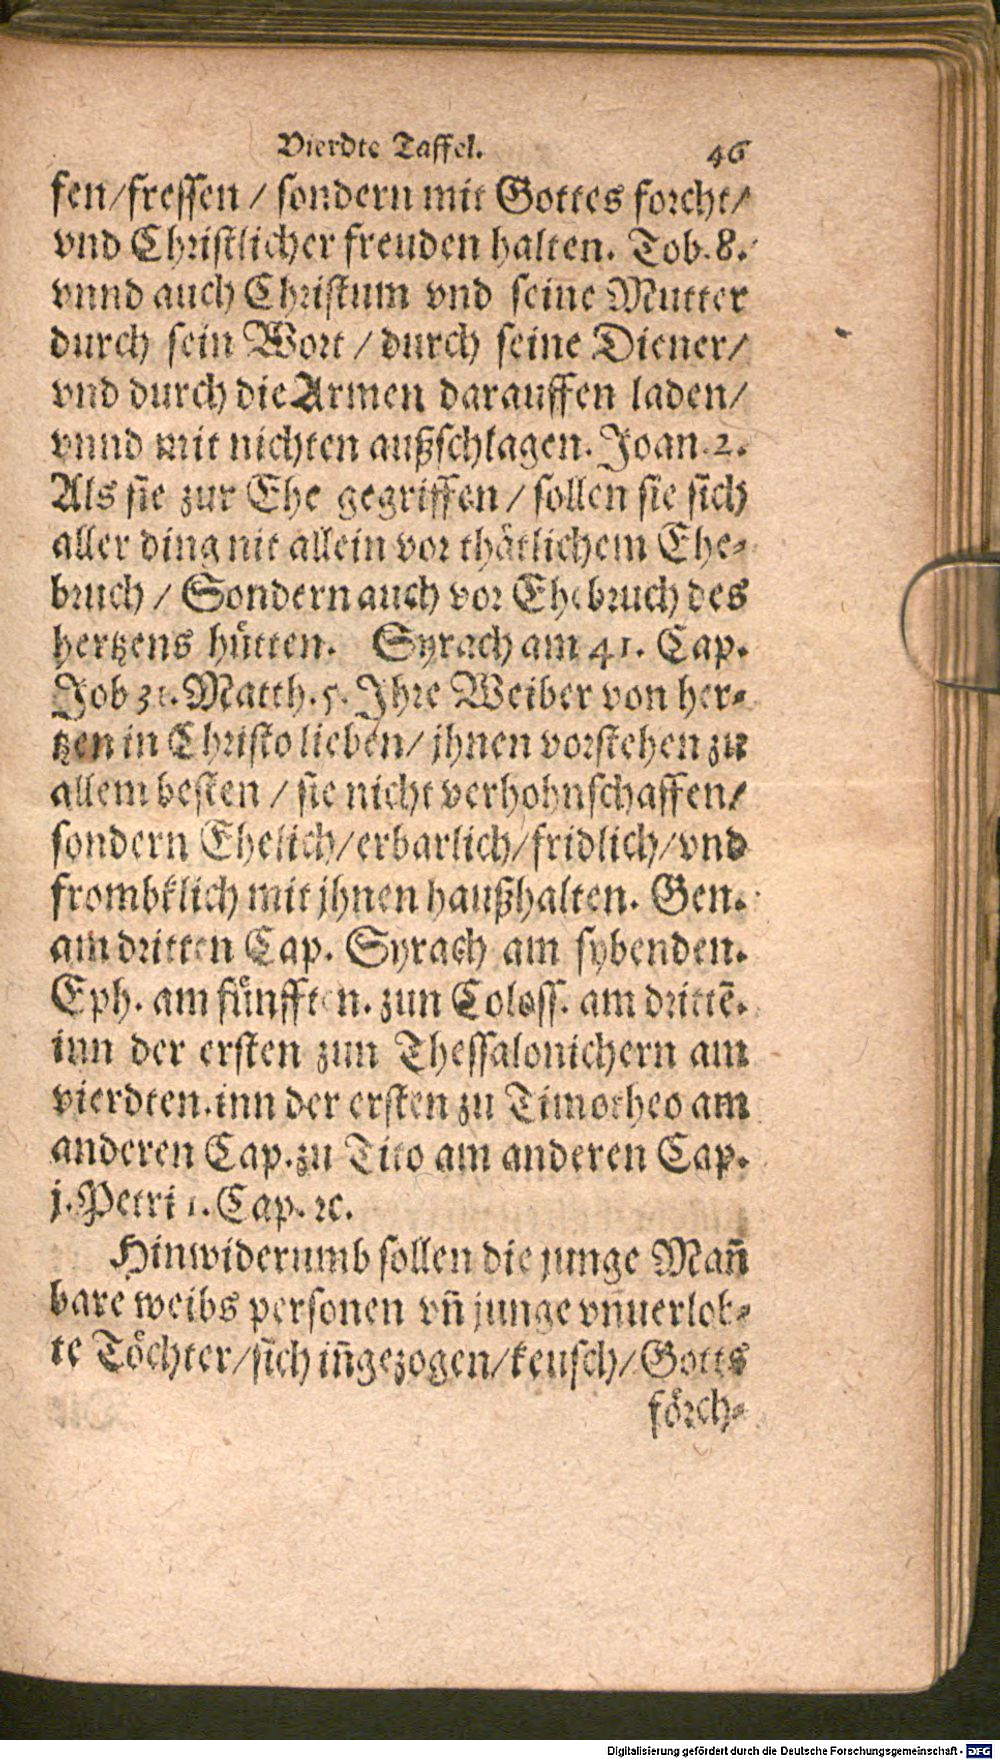 Vierdte Taffel. 46
fen/fressen / sondern mit Gottes forcht/
vnd Christlicher freuden halten. Tob. 8.
vnnd auch Christum vnd seine Mutter
durch sein Wort / durch seine Diener/
vnd durch die Armen darauffen laden/
vnnd mit nichten außschlagen. Joan. 2.
Als sie zur Ehe gegriffen / sollen sie sich
aller ding nit allein vor thätlichem Ehe-
bruch / Sondern auch vor Ehebruch des
hertzens hütten. Syrach am 41. Cap.
Job 31. Matth. 5. Ihre Weiber von her-
tzen in Christo lieben/ jhnen vorstehen zu
allem besten / sie nicht verhohnschaffen/
sondern Ehelich/erbarlich/fridlich/vnd
frombklich mit jhnen haußhalten. Gen.
am dritten Cap. Syrach am sybenden.
Eph. am fünfften. zun Coloss. am drittē.
inn der ersten zun Thessalonichern am
vierdten. inn der ersten zu Timotheo am
anderen Cap. zu Tito am anderen Cap.
j. Petri 1. Cap. ꝛc.
Hinwiderumb sollen die junge Mañ
bare weibs personen vñ junge vnuerlob-
te Töchter/sich iñgezogen/keusch/Gotts
förch-
Digitalisierung gefördert durch die Deutsche Forschungsgemeinschaft - DFG